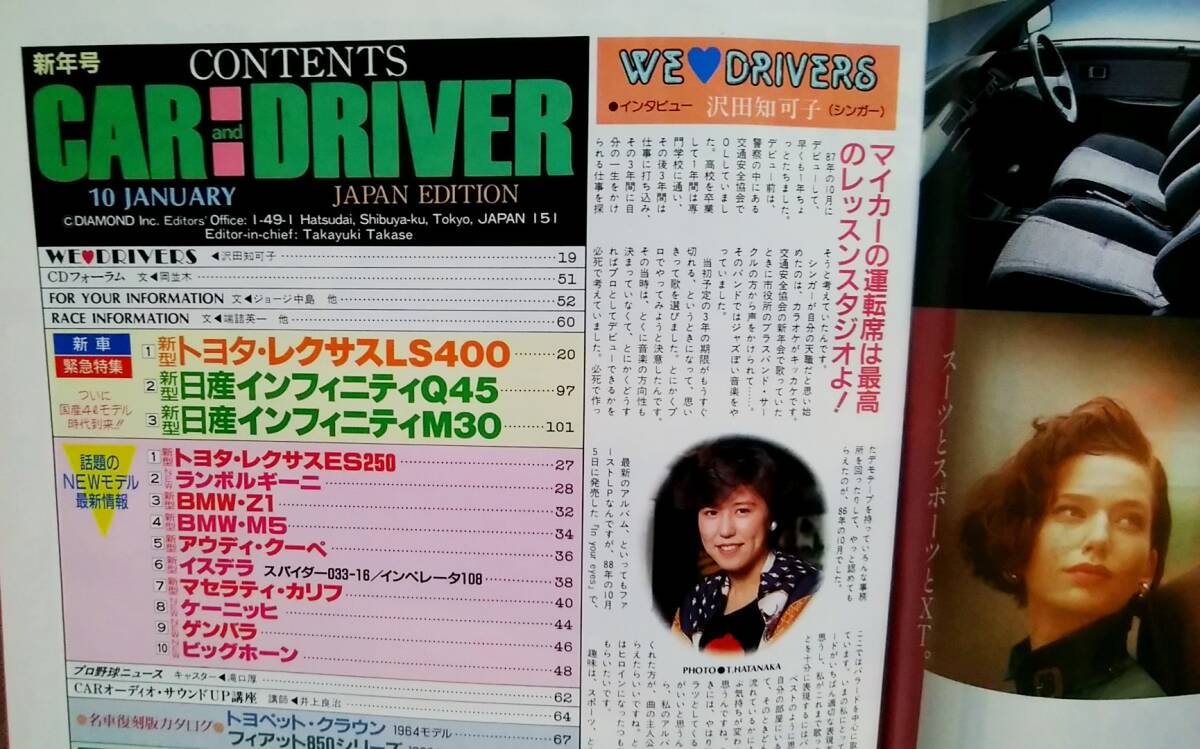 新年号
CONTENTS
CAR and DRIVER
10 JANUARY JAPAN EDITION
©DIAMOND Inc. Editors' Office: 1-49-1 Hatsudai, Shibuya-ku, Tokyo, JAPAN 151
Editor-in-chief: Takayuki Takase
WE♥DRIVERS ◀沢田知可子 19
CDフォーラム 文◀岡並木 51
FOR YOUR INFORMATION 文◀ジョージ中島 他 52
RACE INFORMATION 文◀端詰英一 他 60
新車
緊急特集
ついに
国産4ℓモデル
時代到来!!
1 新型 トヨタ・レクサスLS400 20
2 新型 日産インフィニティQ45 97
3 新型 日産インフィニティM30 101
話題の
NEWモデル
最新情報
1 新型 トヨタ・レクサスES250 27
2 NEW ランボルギーニ 28
3 新型 BMW・Z1 32
4 新型 BMW・M5 34
5 新型 アウディ・クーペ 36
6 新型 イズデラ スパイダー033-16/インペレータ108 38
7 新型 マセラティ・カリフ 40
8 NEW ケーニッヒ 44
9 NEW ゲンバラ 46
10 NEW ビッグホーン 48
プロ野球ニュース キャスター◀滝口厚 62
CARオーディオ・サウンドUP講座 講師◀井上良治 64
●名車復刻版カタログ● トヨペット・クラウン 1964モデル 67
フィアット850シリーズ
WE♥DRIVERS
●インタビュー 沢田知可子(シンガー)
マイカーの運転席は最高
のレッスンスタジオよ!
87年の10月に
デビューして、
早くも1年ちょ
っとたちました。
デビュー前は、
警察の中にある
交通安全協会で
OLしていまし
た。高校を卒業
して1年間は専
門学校に通い、
その後3年間は
仕事に打ち込み、
その3年間に自
分の一生をかけ
られる仕事を探
そうと考えていたんです。
シンガーが自分の天職だと思い始
めたのは、カラオケがキッカケです。
交通安全協会の新年会で歌っていた
ときに市役所のブラスバンド・サー
クルの方から声をかけられて……。
そのバンドではジャズぽい音楽をや
っていました。
当初予定の3年の期限がもうすぐ
切れる、というときになって、思い
きって歌を選びました。とにかくプ
ロでやってみようと決意したんです。
その当時は、とくに音楽の方向性も
決まっていなくて、とにかくどうす
ればプロとしてデビューできるかを
必死で考えていました。必死で作っ
たデモテープを持っていろんな事務
所を回ったりして、やっと認めても
らえたのが、86年の10月でした。
最新のアルバム、といってもファ
ーストLPなんですが、88年の10月
5日に発売した「In your eyes」で、
PHOTO●T.HATANAKA
スーツとスポーツとXT。